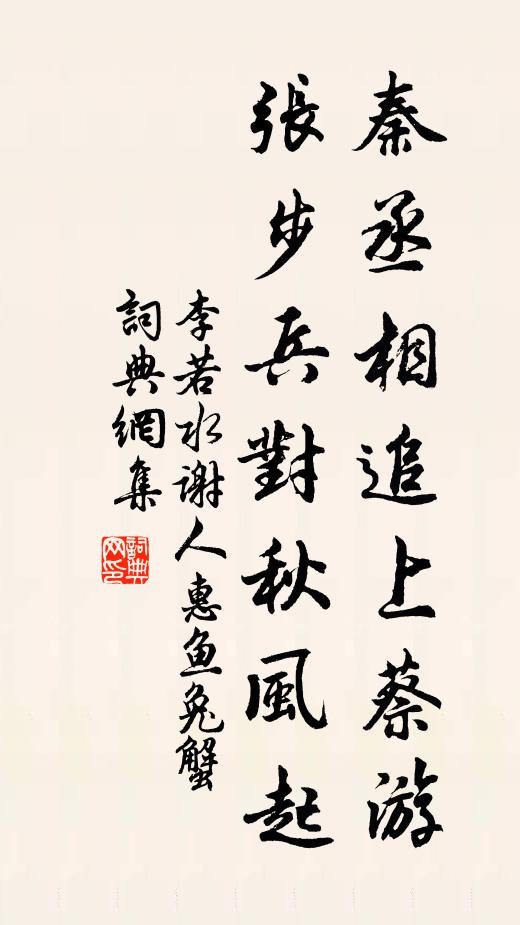 秦丞相追上蔡游
張步兵對秋風起
李若水谢人惠鱼兔蟹
詞典網集
詞典网印